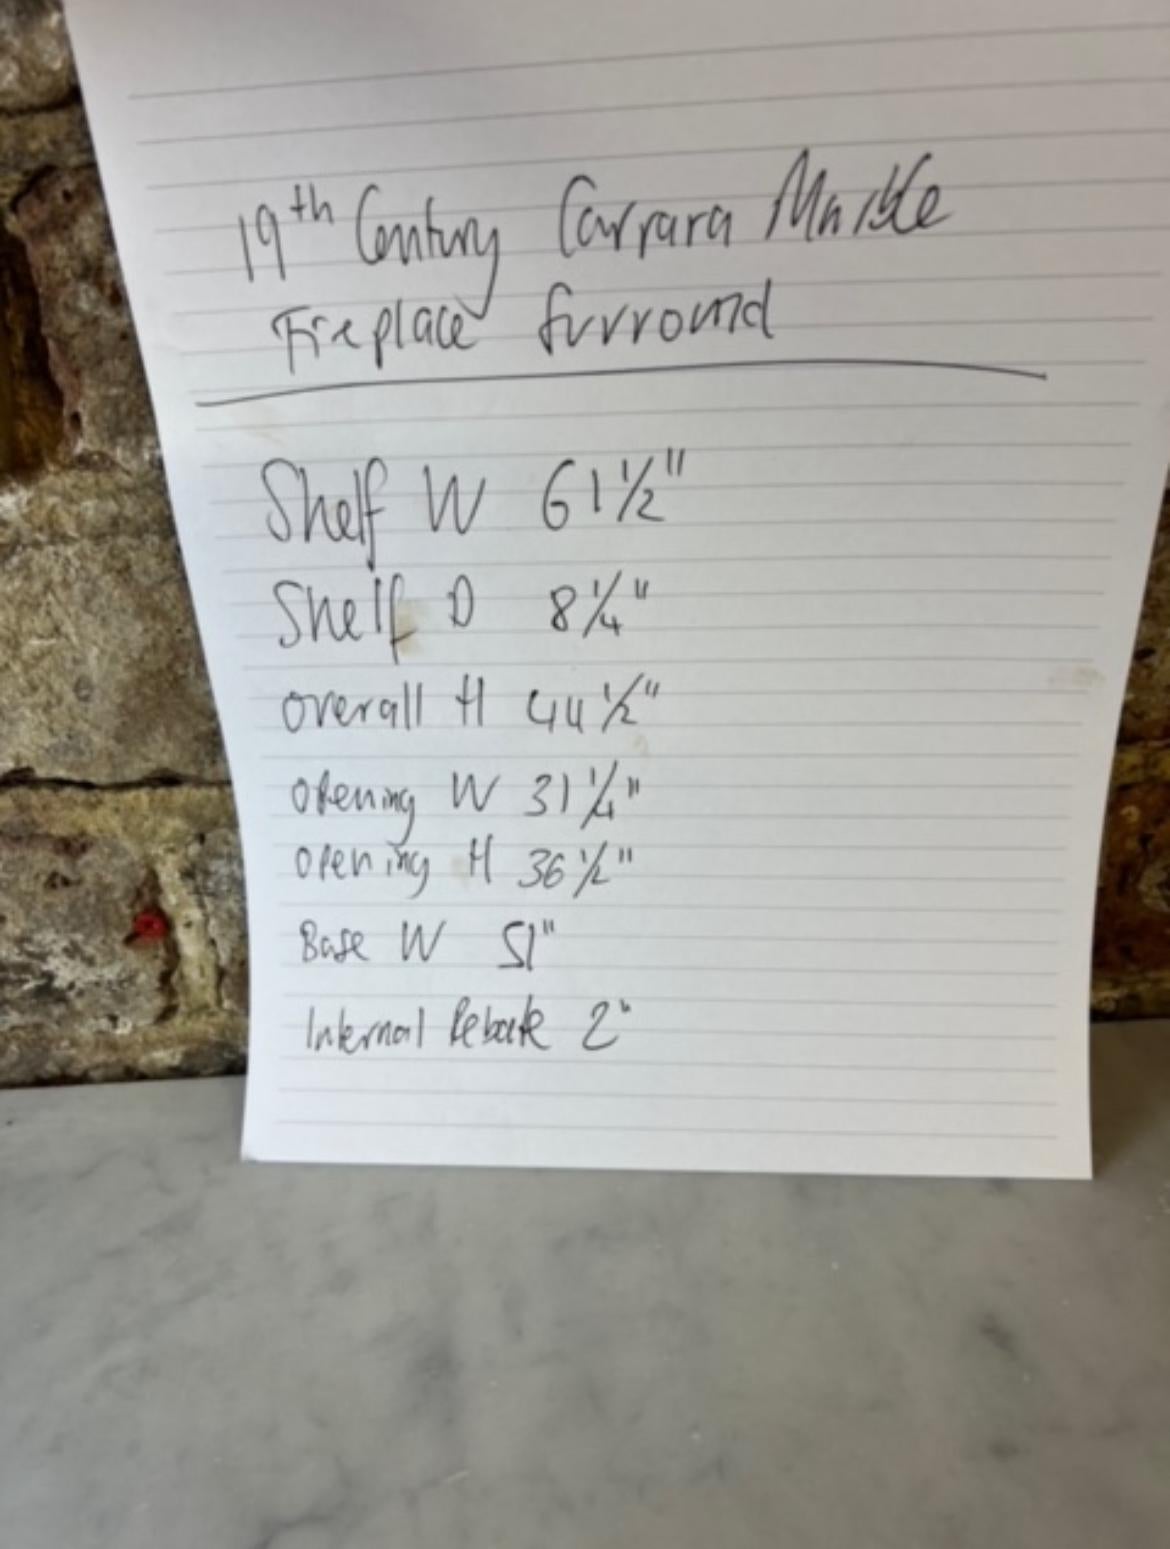 19th Century Carrara Marble
Fireplace Surround
Shelf W 61 1/2"
Shelf D 8 1/4"
Overall H 44 1/2"
Opening W 31 1/4"
Opening H 36 1/2"
Base W 51"
Internal Rebate 2"